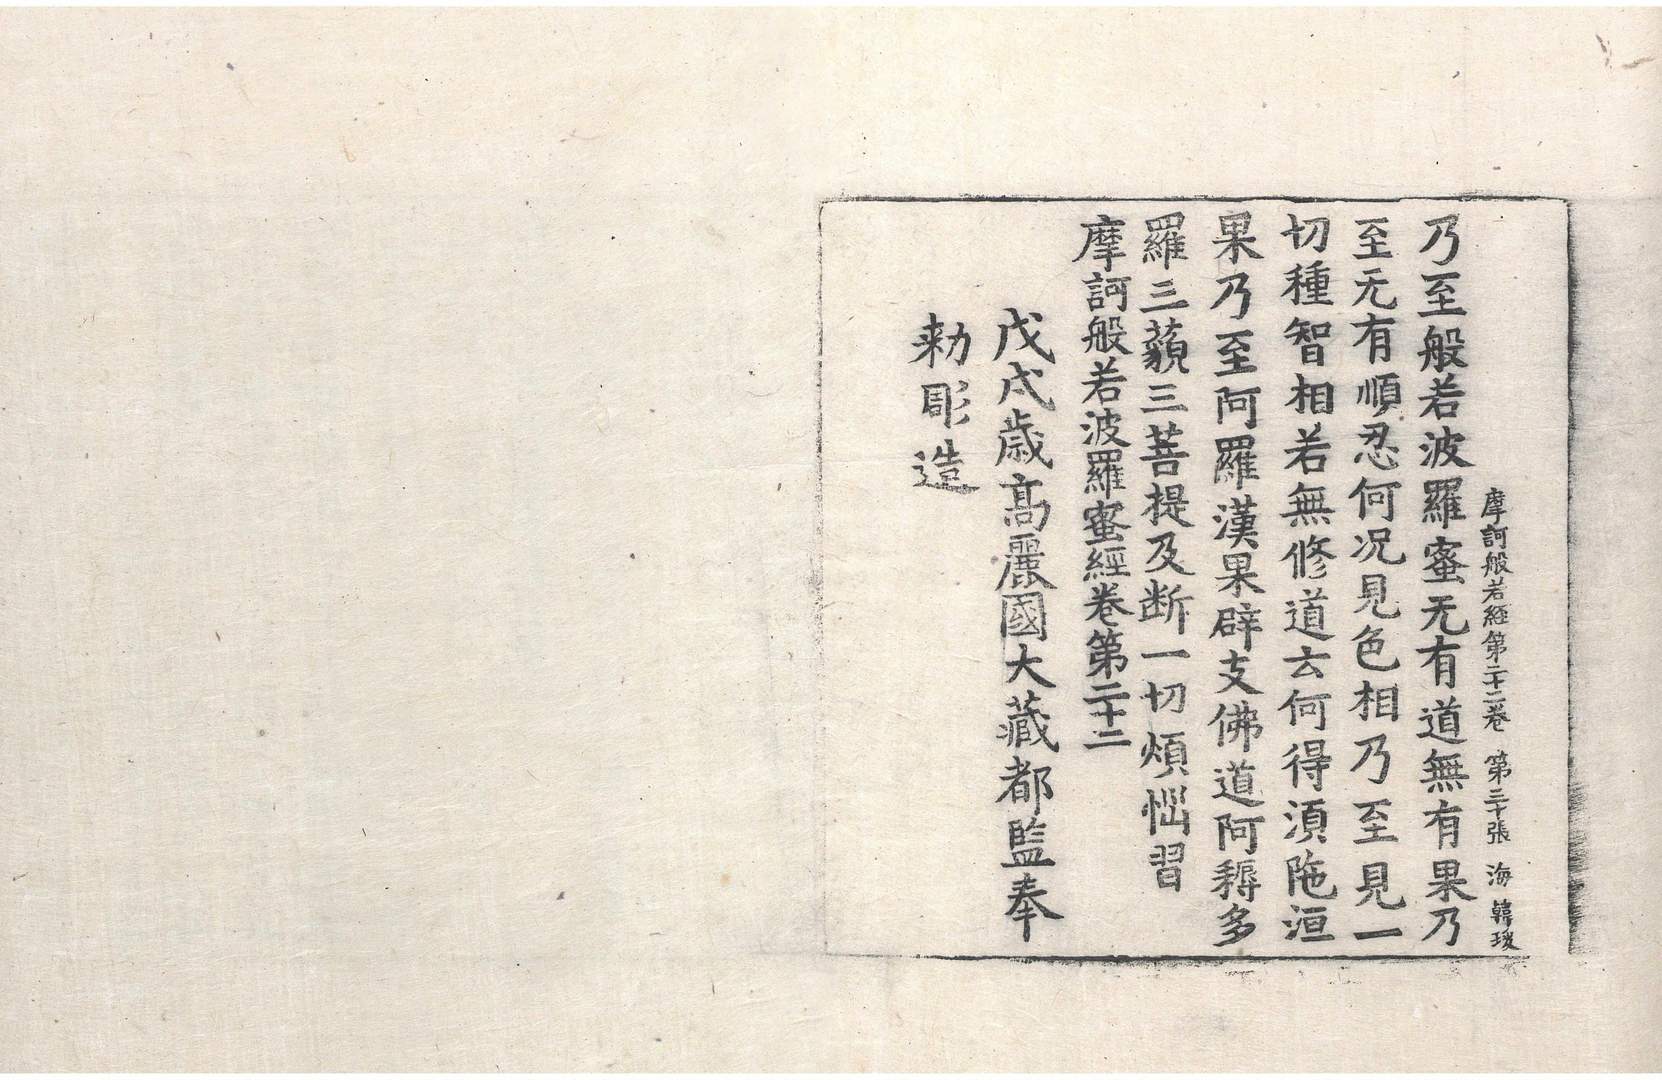 摩訶般若經第二十二卷 第三十張 海 韓瑗
乃至般若波羅蜜无有道無有果乃
至无有順忍何况見色相乃至見一
切種智相若無修道云何得湏陁洹
果乃至阿羅漢果辟支佛道阿耨多
羅三藐三菩提及断一切煩惱習
摩訶般若波羅蜜經卷第二十二
戊戌歳髙麗國大藏都監奉
勑彫造